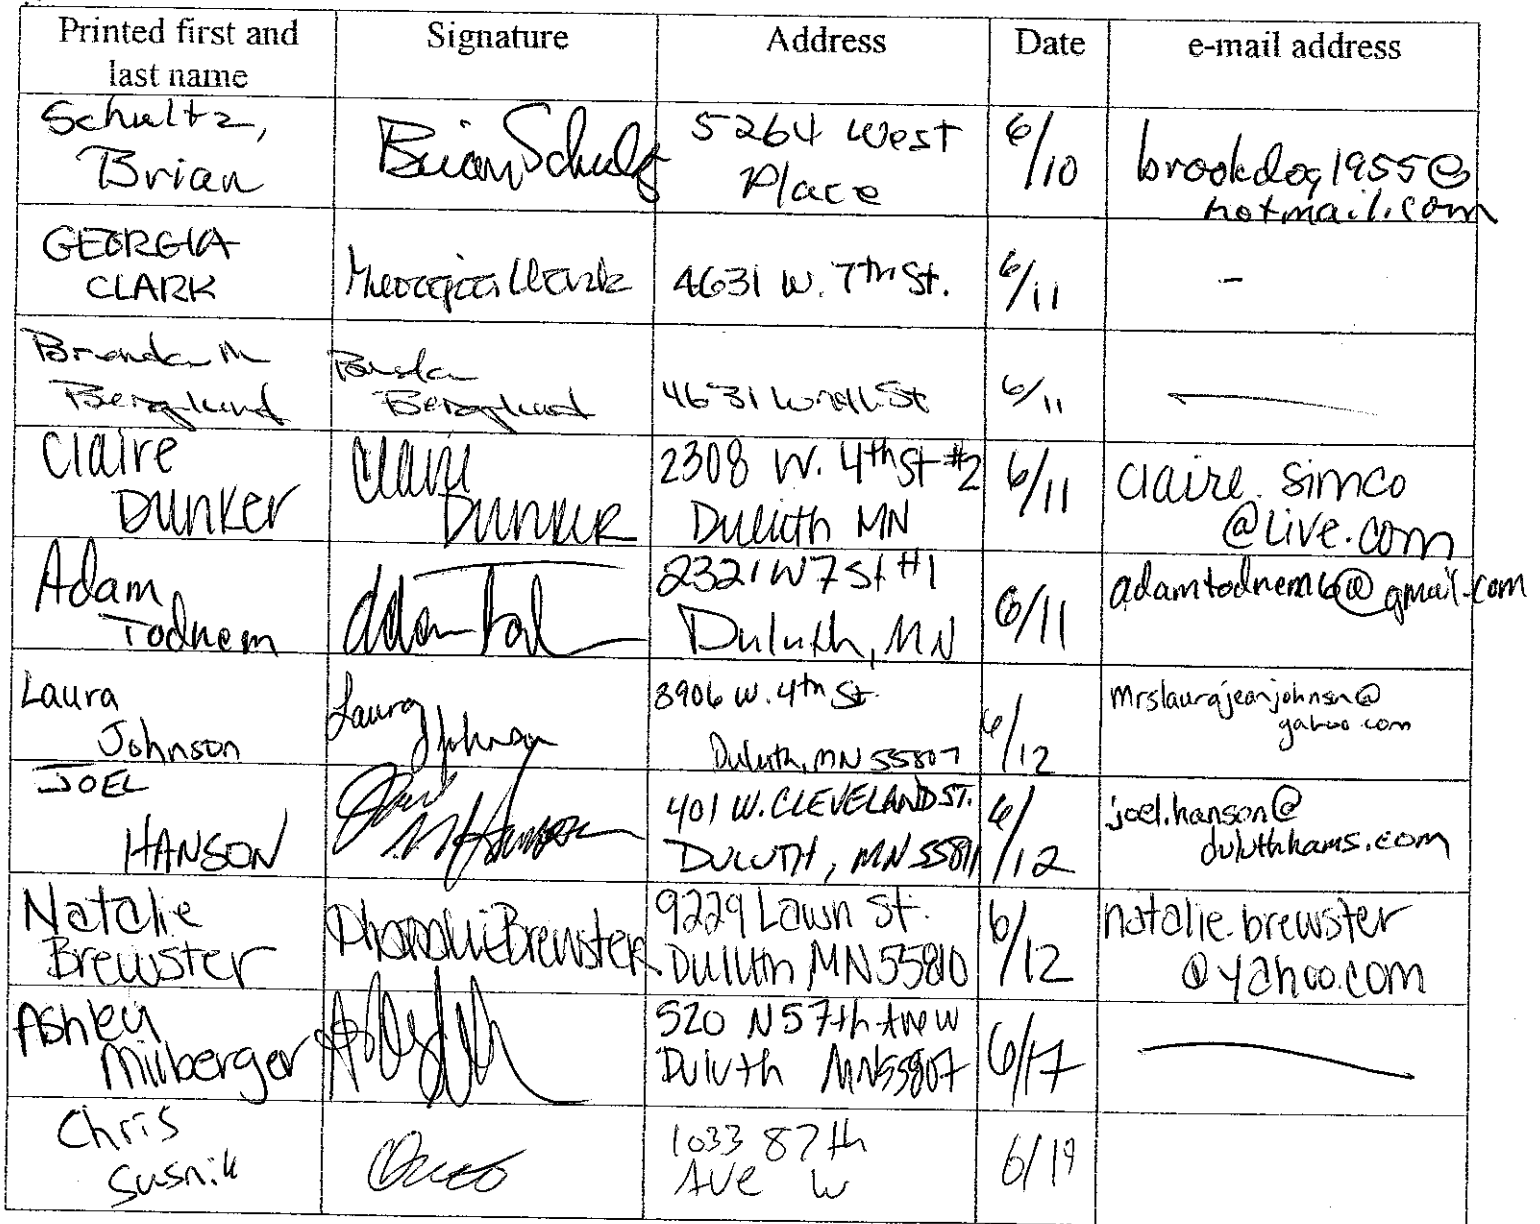 Printed first and last name
Signature
Address
Date
e-mail address
Schultz,
Brian
Brian Schultz
5264 West
Place
6/10
brookdog1955@
hotmail.com
GEORGIA
CLARK
Georgia Clark
4631 W. 7th St.
6/11
-
Brenda M
Berglund
Brenda
Berglund
4631 W 7th St
6/11
Claire
DUNKER
Claire
DUNKER
2308 W. 4th St #2
Duluth MN
6/11
claire.simco
@live.com
Adam
Todnem
Adam Tod
2321 W 7 St #1
Duluth, MN
6/11
adamtodnem6@gmail.com
Laura
Johnson
Laura
Johnson
3906 W. 4th St.
Duluth, MN 55807
6/12
mrslaurajeanjohnson@
yahoo.com
JOEL
HANSON
401 W. CLEVELAND ST.
DULUTH, MN 55811
6/12
joel.hanson@
duluthhams.com
Natalie
Brewster
Brewster
9229 Lawn St.
Duluth MN 55810
6/12
natalie.brewster
@yahoo.com
Ashley
Milberger
520 N 57th Ave W
Duluth MN 55807
6/17
Chris
Susnik
1033 87th
Ave W
6/19